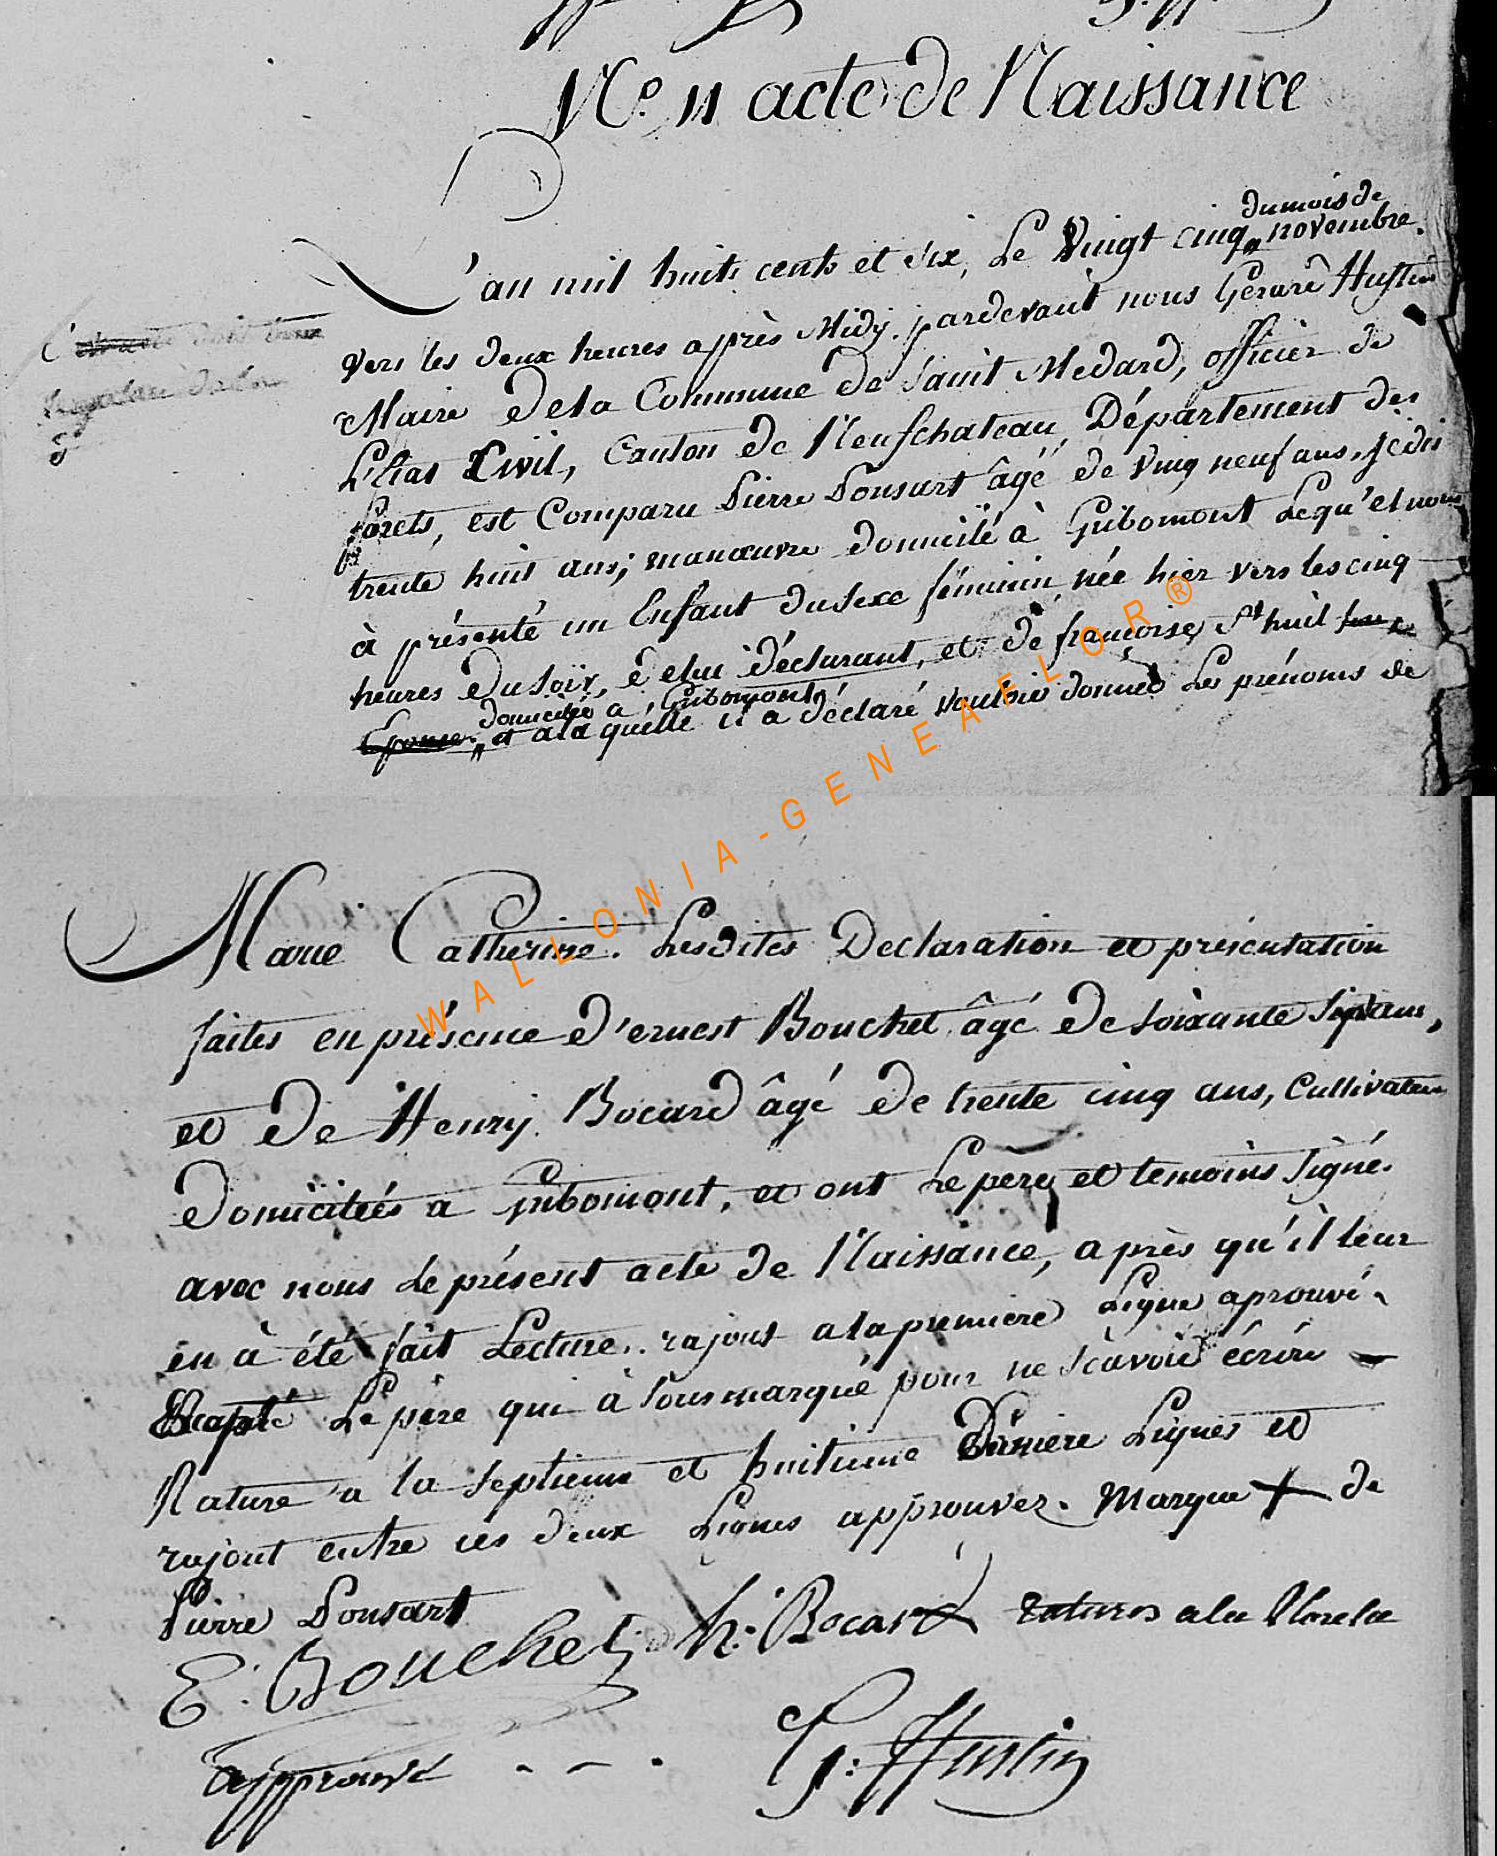 N.º 11 acte de Naissance
L'an mil huit cents et six, Le Vingt cinq du mois de novembre.
vers les deux heures après Midy. pardevant nous Gérard Hustin
Maire de la Commune de Saint Medard, officier de
L'Etat Civil, Canton de Neufchateau, Département des
forets, est Comparu Pierre Ponsart âgé de Ving neuf ans, je dis
trente huit ans; manœuvre domicilé à Gribomont Lequ'el nous
à présenté un Enfant du sexe féminin, née hier vers les cinq
heures du soir, de lui déclarant, et de françoise, St huil
Epouse. domiciliée a Gribomont et a la quelle il a déclaré vouloir donner Les prénoms de
Marie Catherine. Lesdites Declaration et présentation
faites en présence d'ernest Bouchet âgé de soixante Sept ans,
et de Henry Bocard âgé de trente cinq ans, Cultivateurs
Domiciliés a Gribomont, et ont Le pere et temoins signé.
avec nous Le présent acte de Naissance, après qu'il leur
en à été fait Lecture. rajout a la premiere Ligne aprouvé.
Excepté Le père qui à sousmarqué pour ne sçavoir écrire
Rature a la Septieme et huitieme Derniere Lignes et
rajout entre ces deux Lignes approuvez. Marque + de
Pierre Ponsart
E: Bouchet h: Bocard ratures a la
approuvé - - . G: Hustin
WALLONIA-GENEAFLOR®